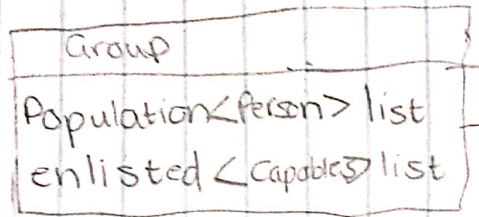 Group
Population<Person> list
enlisted <Capables> list